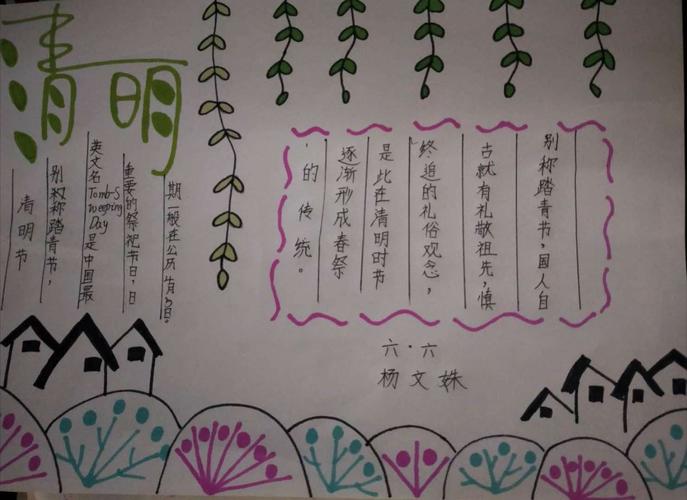 清明
清明节
别称踏青节，
英文名Tomb-Sweeping Day是中国最
重要的祭祀节日，日
期一般在公历
别称踏青节，国人自
古就有礼敬祖先，慎
终追的礼俗观念，
是此在清明时节
逐渐形成春祭
的传统。
六·六
杨文姝